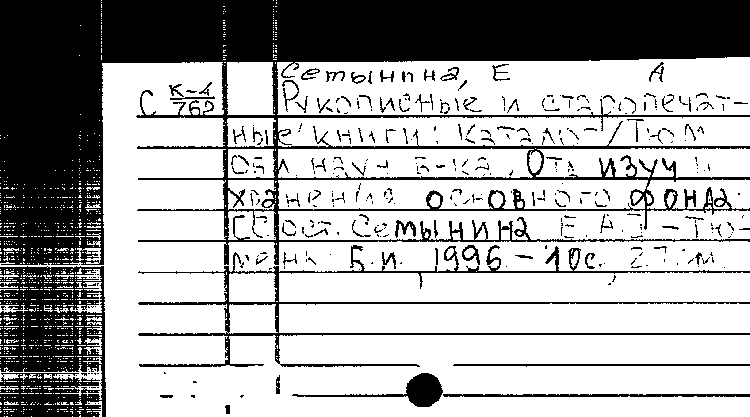 Семынина, Е А
С К-4/762 Рукописные и старопечат-
ные книги: Каталог/Тюм
Обл науч б-ка, Отд изуч и
хранения основного фонда;
[Сост. Семынина Е.А.] – Тю-
мень: Б.и., 1996 – 10с, 27см